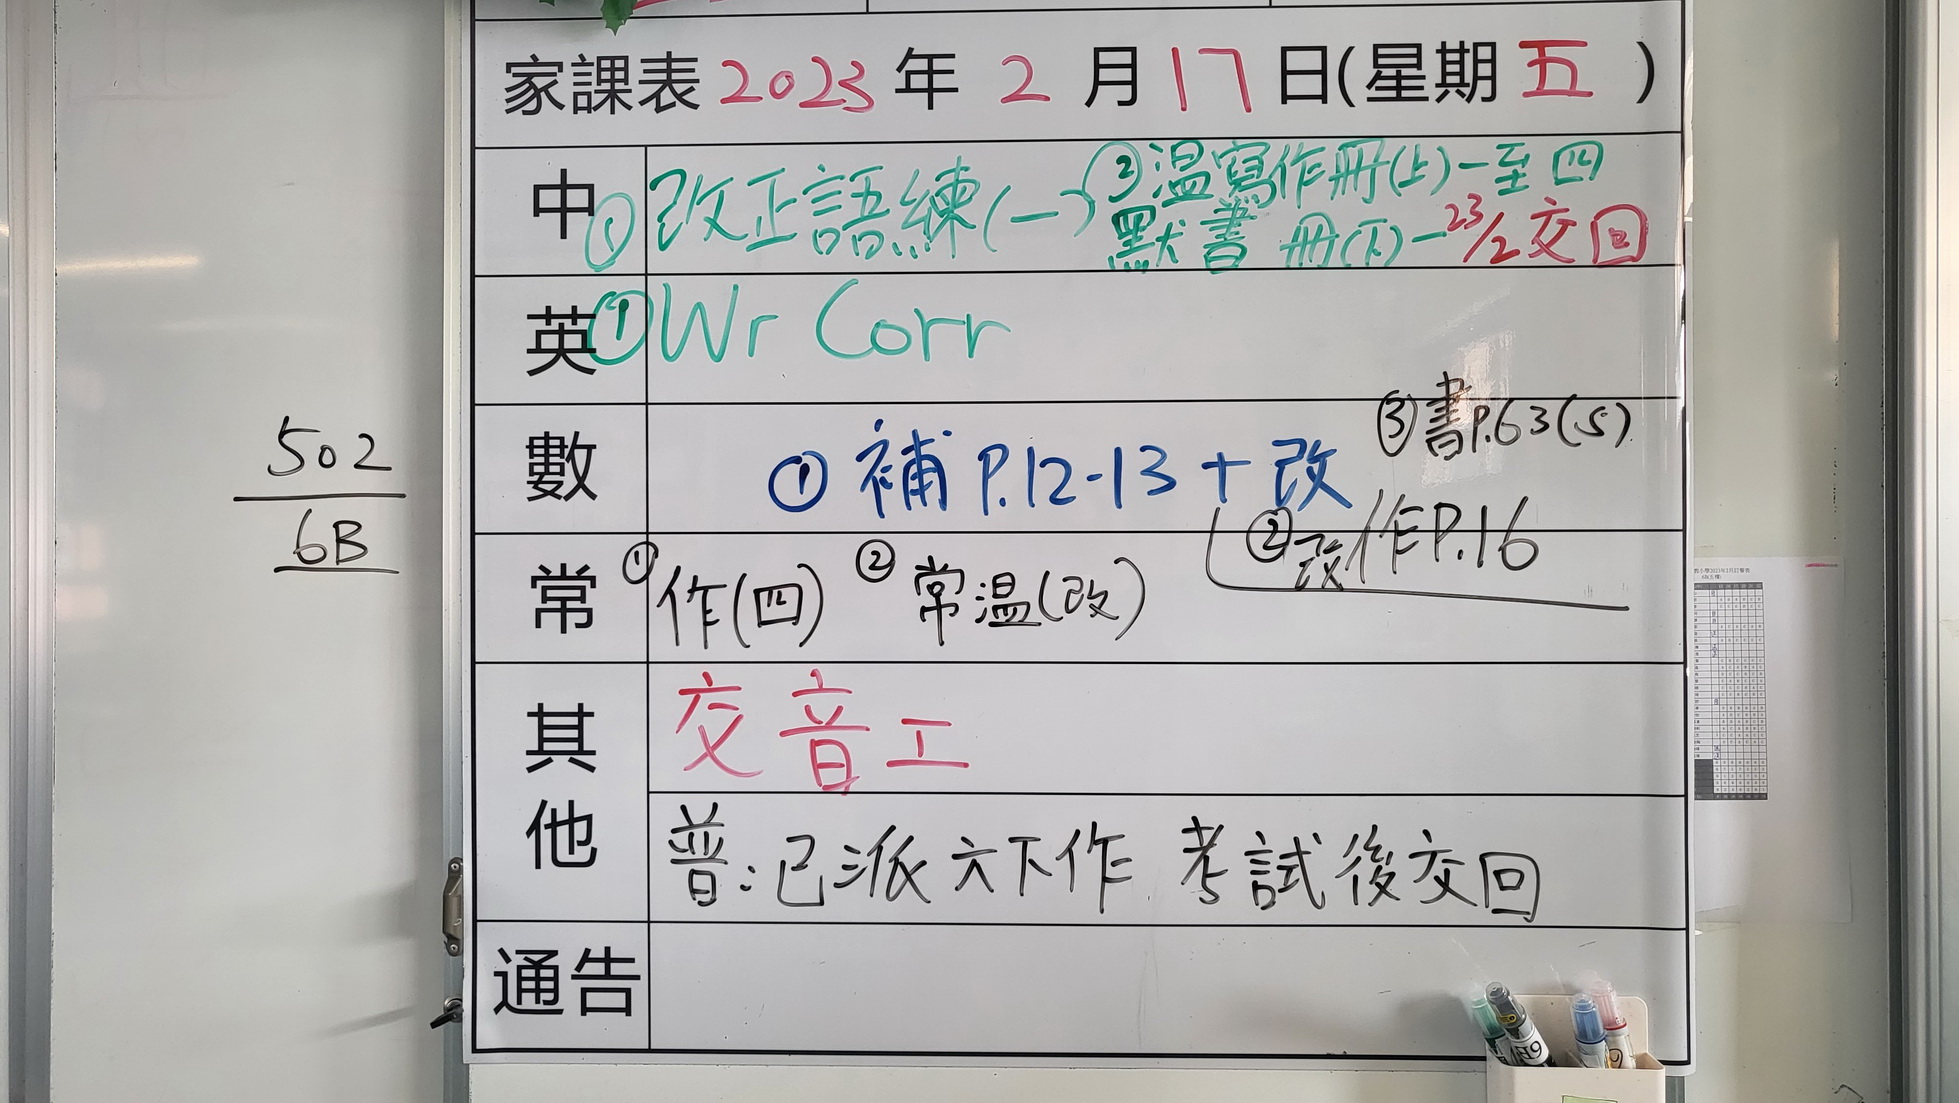 家課表 2023 年 2 月 17 日(星期 五 )
中 ① 改正語練(一) ② 温寫作冊(上)一至四
默書 冊(下)一 23/2 交回
英 ① Wr Corr
數 ① 補 P.12-13 + 改
③ 書P.63(5)
② 改作P.16
常 ① 作(四) ② 常温(改)
其他
交音工
普:已派六下作 考試後交回
通告
502
6B